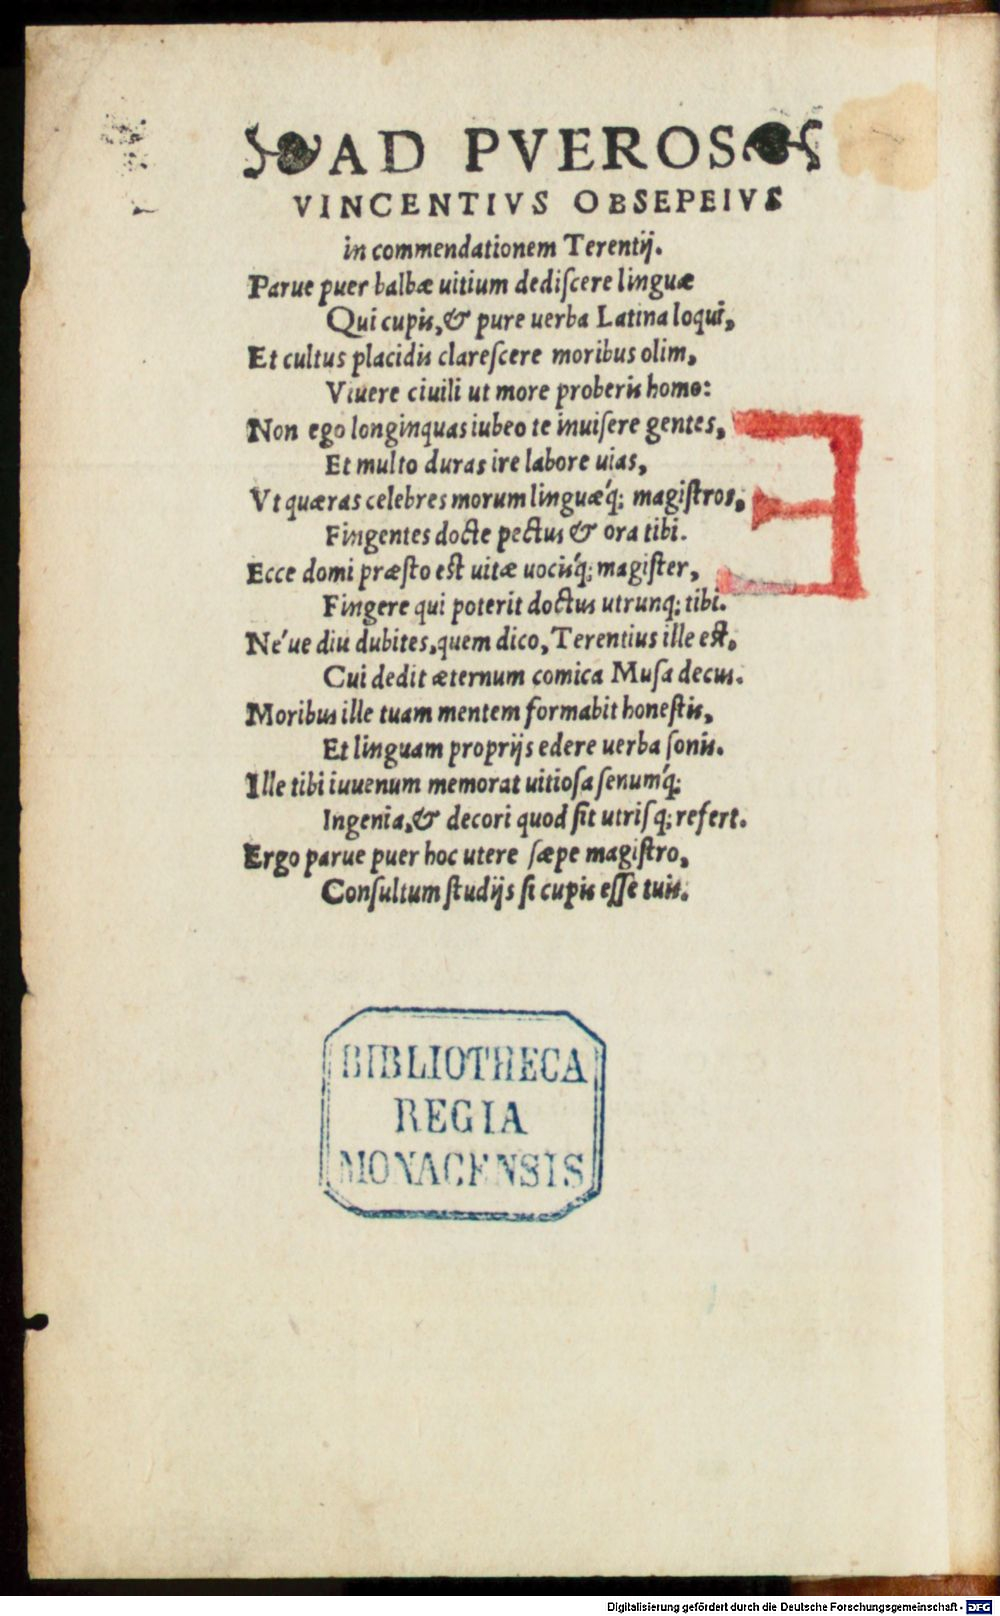 AD PVEROS
VINCENTIVS OBSEPEIVS
in commendationem Terentij.
Parue puer balbæ uitium dediſcere linguæ
Qui cupis, & pure uerba Latina loqui,
Et cultus placidis clareſcere moribus olim,
Viuere ciuili ut more proberis homo:
Non ego longinquas iubeo te inuiſere gentes,
Et multo duras ire labore uias,
Vt quæras celebres morum linguǽq; magiſtros,
Fingentes docte pectus & ora tibi.
Ecce domi præſto eſt uitæ uociśq; magiſter,
Fingere qui poterit doctus utrunq; tibi.
Né ue diu dubites, quem dico, Terentius ille eſt,
Cui dedit æternum comica Muſa decus.
Moribus ille tuam mentem formabit honeſtis,
Et linguam proprijs edere uerba ſonis.
Ille tibi iuuenum memorat uitioſa ſenum´q;
Ingenia, & decori quod ſit utriſq; refert.
Ergo parue puer hoc utere ſæpe magiſtro,
Conſultum ſtudijs ſi cupis eſſe tuis.
E
BIBLIOTHECA
REGIA
MONACENSIS
Digitalisierung gefördert durch die Deutsche Forschungsgemeinschaft - DFG